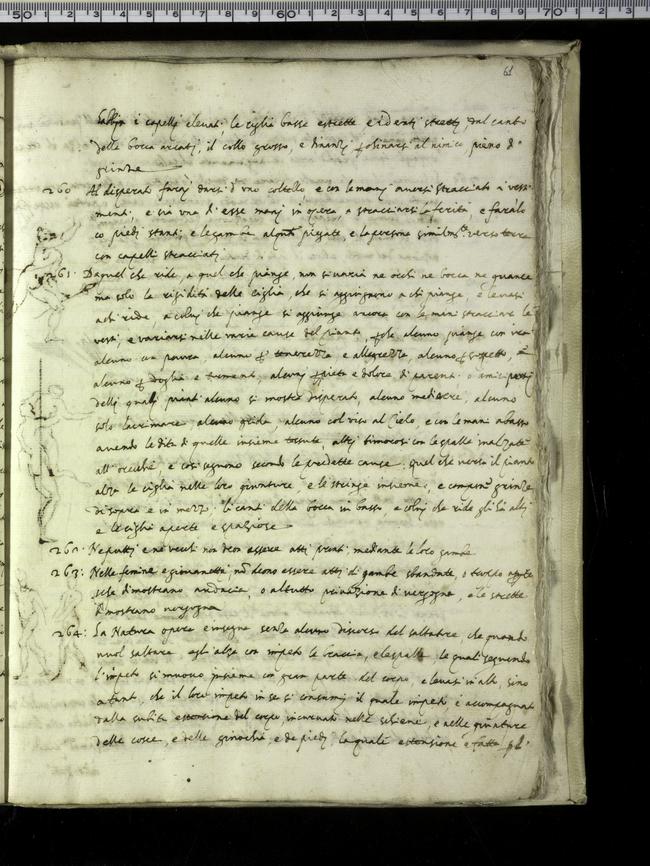 61
i capelli elevati, le ciglia basse e strette e i denti stretti, dal canto
della bocca arcati, il collo grosso, e dinanzi al nimico, pieno di
grinze
260 Al disperato farai darsi d'uno coltello e con le mani aversi stracciato i vesti
menti, e sia una di esse mani in opera a stracciarsi la ferita, e farailo
co piedi stanti, e le gambe alquanto piegate, e la persona verso terra
con capelli stracciati
261. Da quel che ride, a quel che piange, non si varia ne occhi ne bocca ne guance
ma solo la rigidità delle ciglia, che s'aggiungono a chi piange, e levasi
a chi ride a colui che piange si aggiunge ancora con le mani stracciare le
vesti, e variarsi nelle varie cause del pianto, alcuno piange con ira
alcuno con paura, alcuni tenerezza e allegrezza, alcuno sospetto,
alcuno doglia e tormento, alcuni pietà e dolore di parenti o amici
delli quali pianti alcuno si mostra disperato, alcuno mediocre, alcuno
solo lacrimare, alcuno grida, alcuno col viso al Cielo, e con le mani abasso
avendo le dita di quelle insieme tessute, altri timorosi con le spalle inalzate
all'orecchie, e così seguono secondo le predette cause. quel che versa il pianto
alza le ciglia nelle loro giunture, e le stringe insieme, e grinze
di sopra e in mezzo, li canti della bocca in basso, e colui che ride gli ha alti
e le ciglia aperte e spaziose
Ne putti e ne vecchi non deon essere atti pronti mediante le loro gambe
263: Nelle femine e giovanetti non deono essere atti di gambe sbandate, o troppo
dimostrano audacia, o al tutto privazione di vergogna, e le strette
dimostrano vergogna
264: La Natura opera e insegna senza alcuno discorso del saltatore, che quando
vuol saltare egli alza con impeto le braccia, e le spalle, le quali seguendo
l'impeto si muovo insieme con gran parte del corpo, e levasi in alto, sino
a tanto, che il loro impeto in se si consumi, il quale impeto è accompagnato
dalla subita estensione del corpo, incurvato nelle schiene, e nelle giunture
delle cosce, e delle ginochia, e de piedi, la quale estensione è fatta